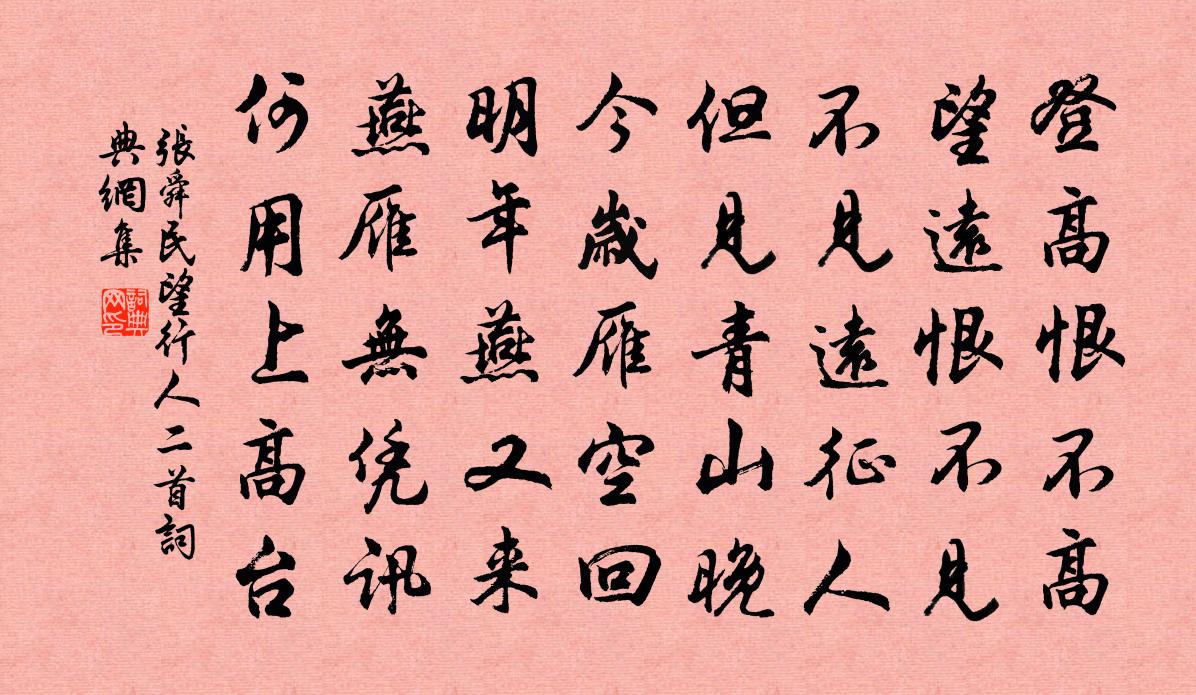 登高恨不高
望遠恨不見
不見遠征人
但見青山晚
今歲雁空回
明年燕又来
燕雁無凭訊
何用上高台
張舜民望行人二首詞
典網集
詞典网印